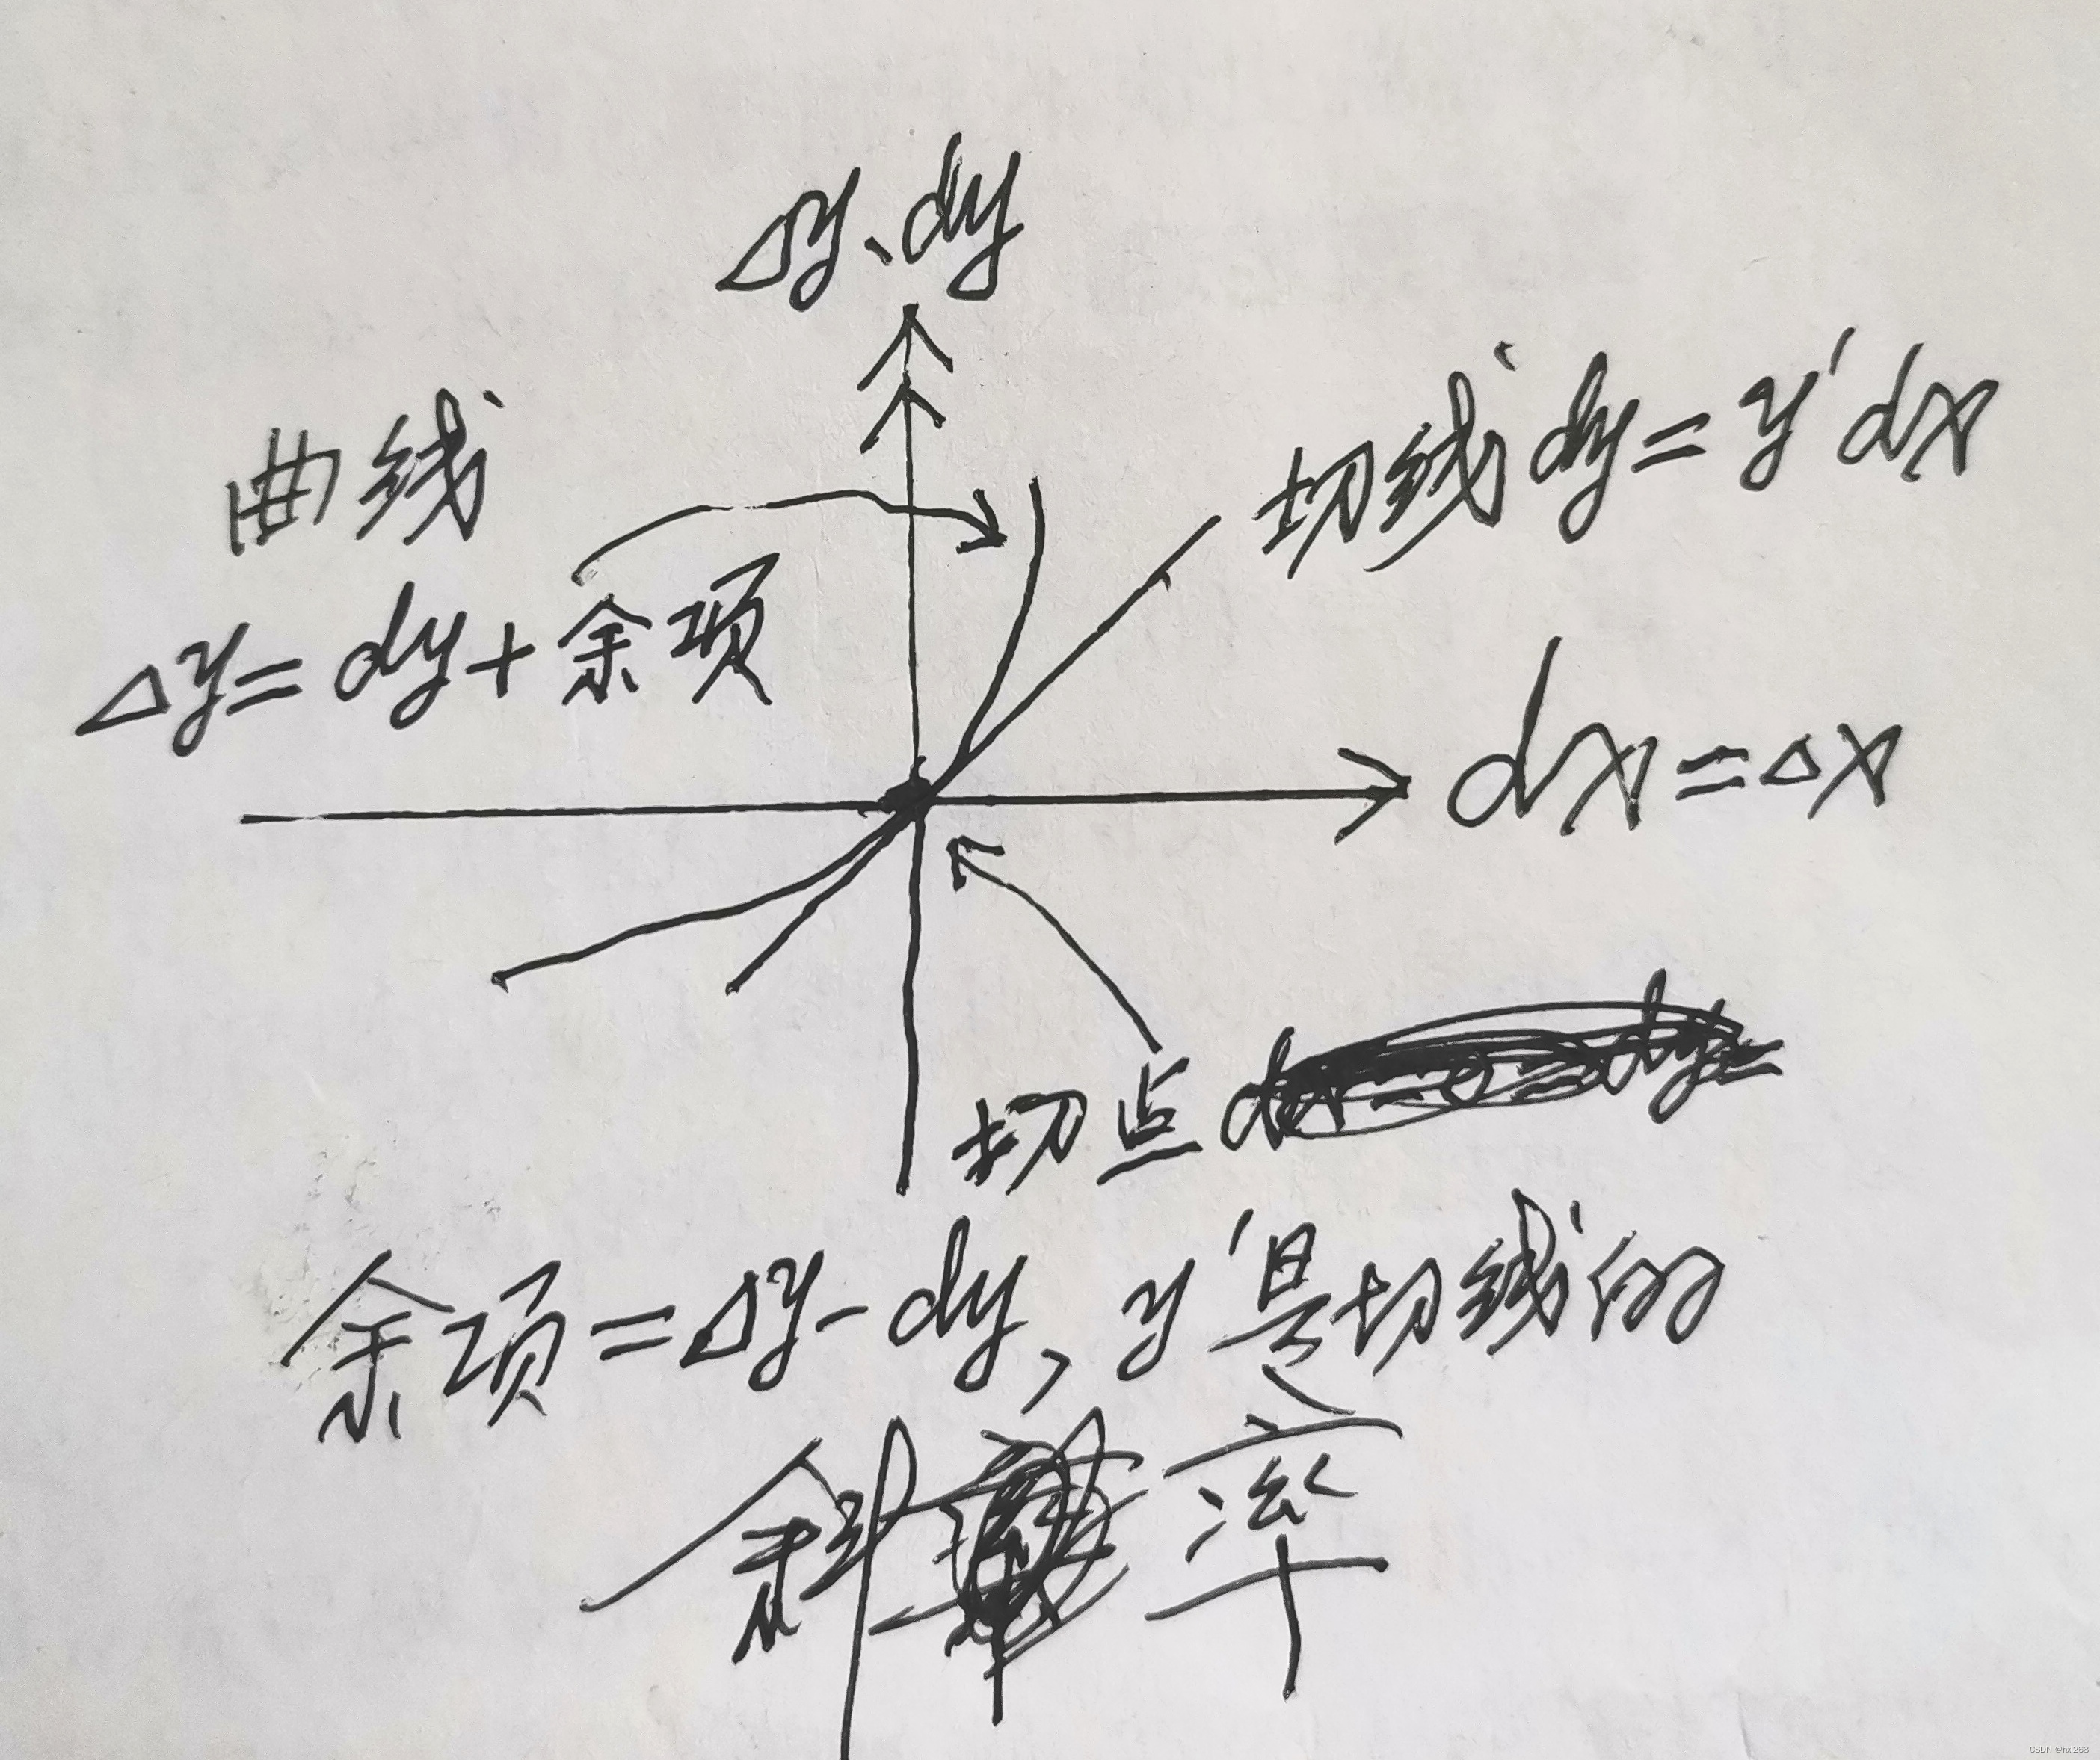 Δy、dy
曲线
切线dy=y'dx
Δy=dy+余项
dx=Δx
切点
余项=Δy-dy,y'是切线的
斜率
CSDN @hxl268